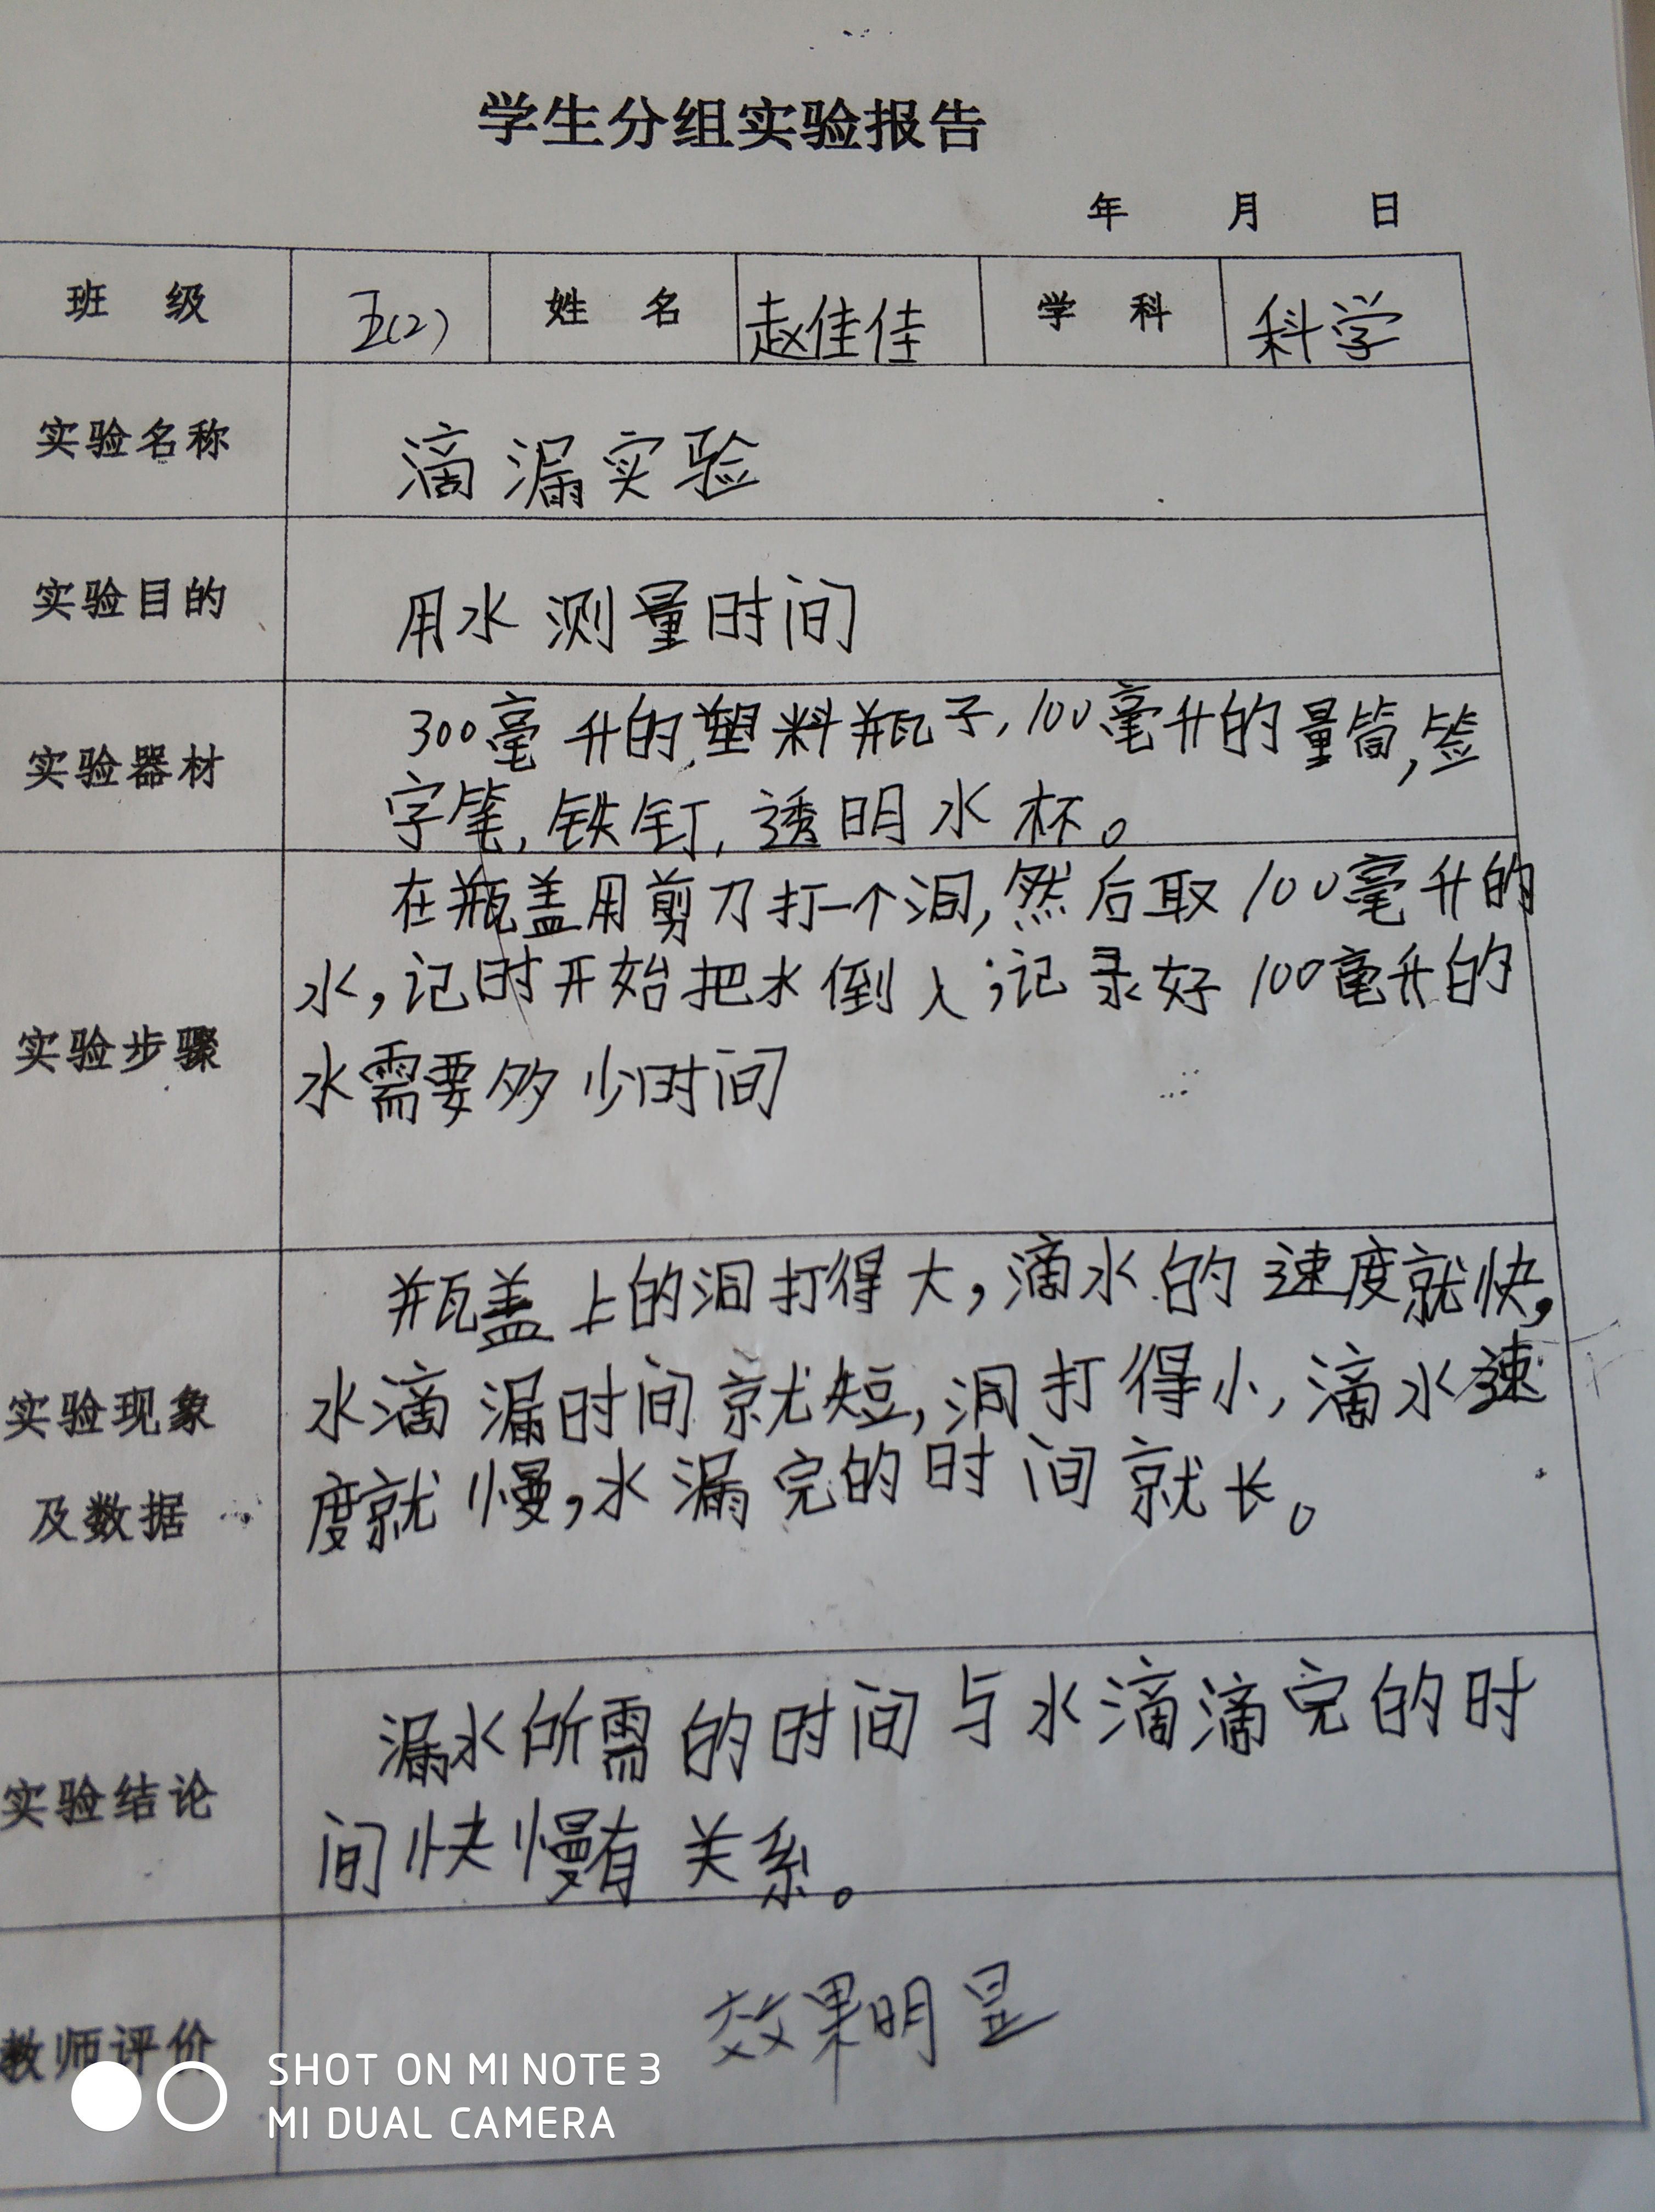 学生分组实验报告
年 月 日
班 级 五(2) 姓 名 赵佳佳 学 科 科学
实验名称 滴漏实验
实验目的 用水测量时间
实验器材
300毫升的塑料瓶子,100毫升的量筒,签
字笔,铁钉,透明水杯。
实验步骤
在瓶盖用剪刀打一个洞,然后取100毫升的
水,记时开始把水倒入;记录好100毫升的
水需要多少时间
实验现象
及数据
瓶盖上的洞打得大,滴水的速度就快,
水滴漏时间就短,洞打得小,滴水速
度就慢,水漏完的时间就长。
实验结论
漏水所需的时间与水滴滴完的时
间快慢有关系。
教师评价 效果明显
SHOT ON MI NOTE 3
MI DUAL CAMERA